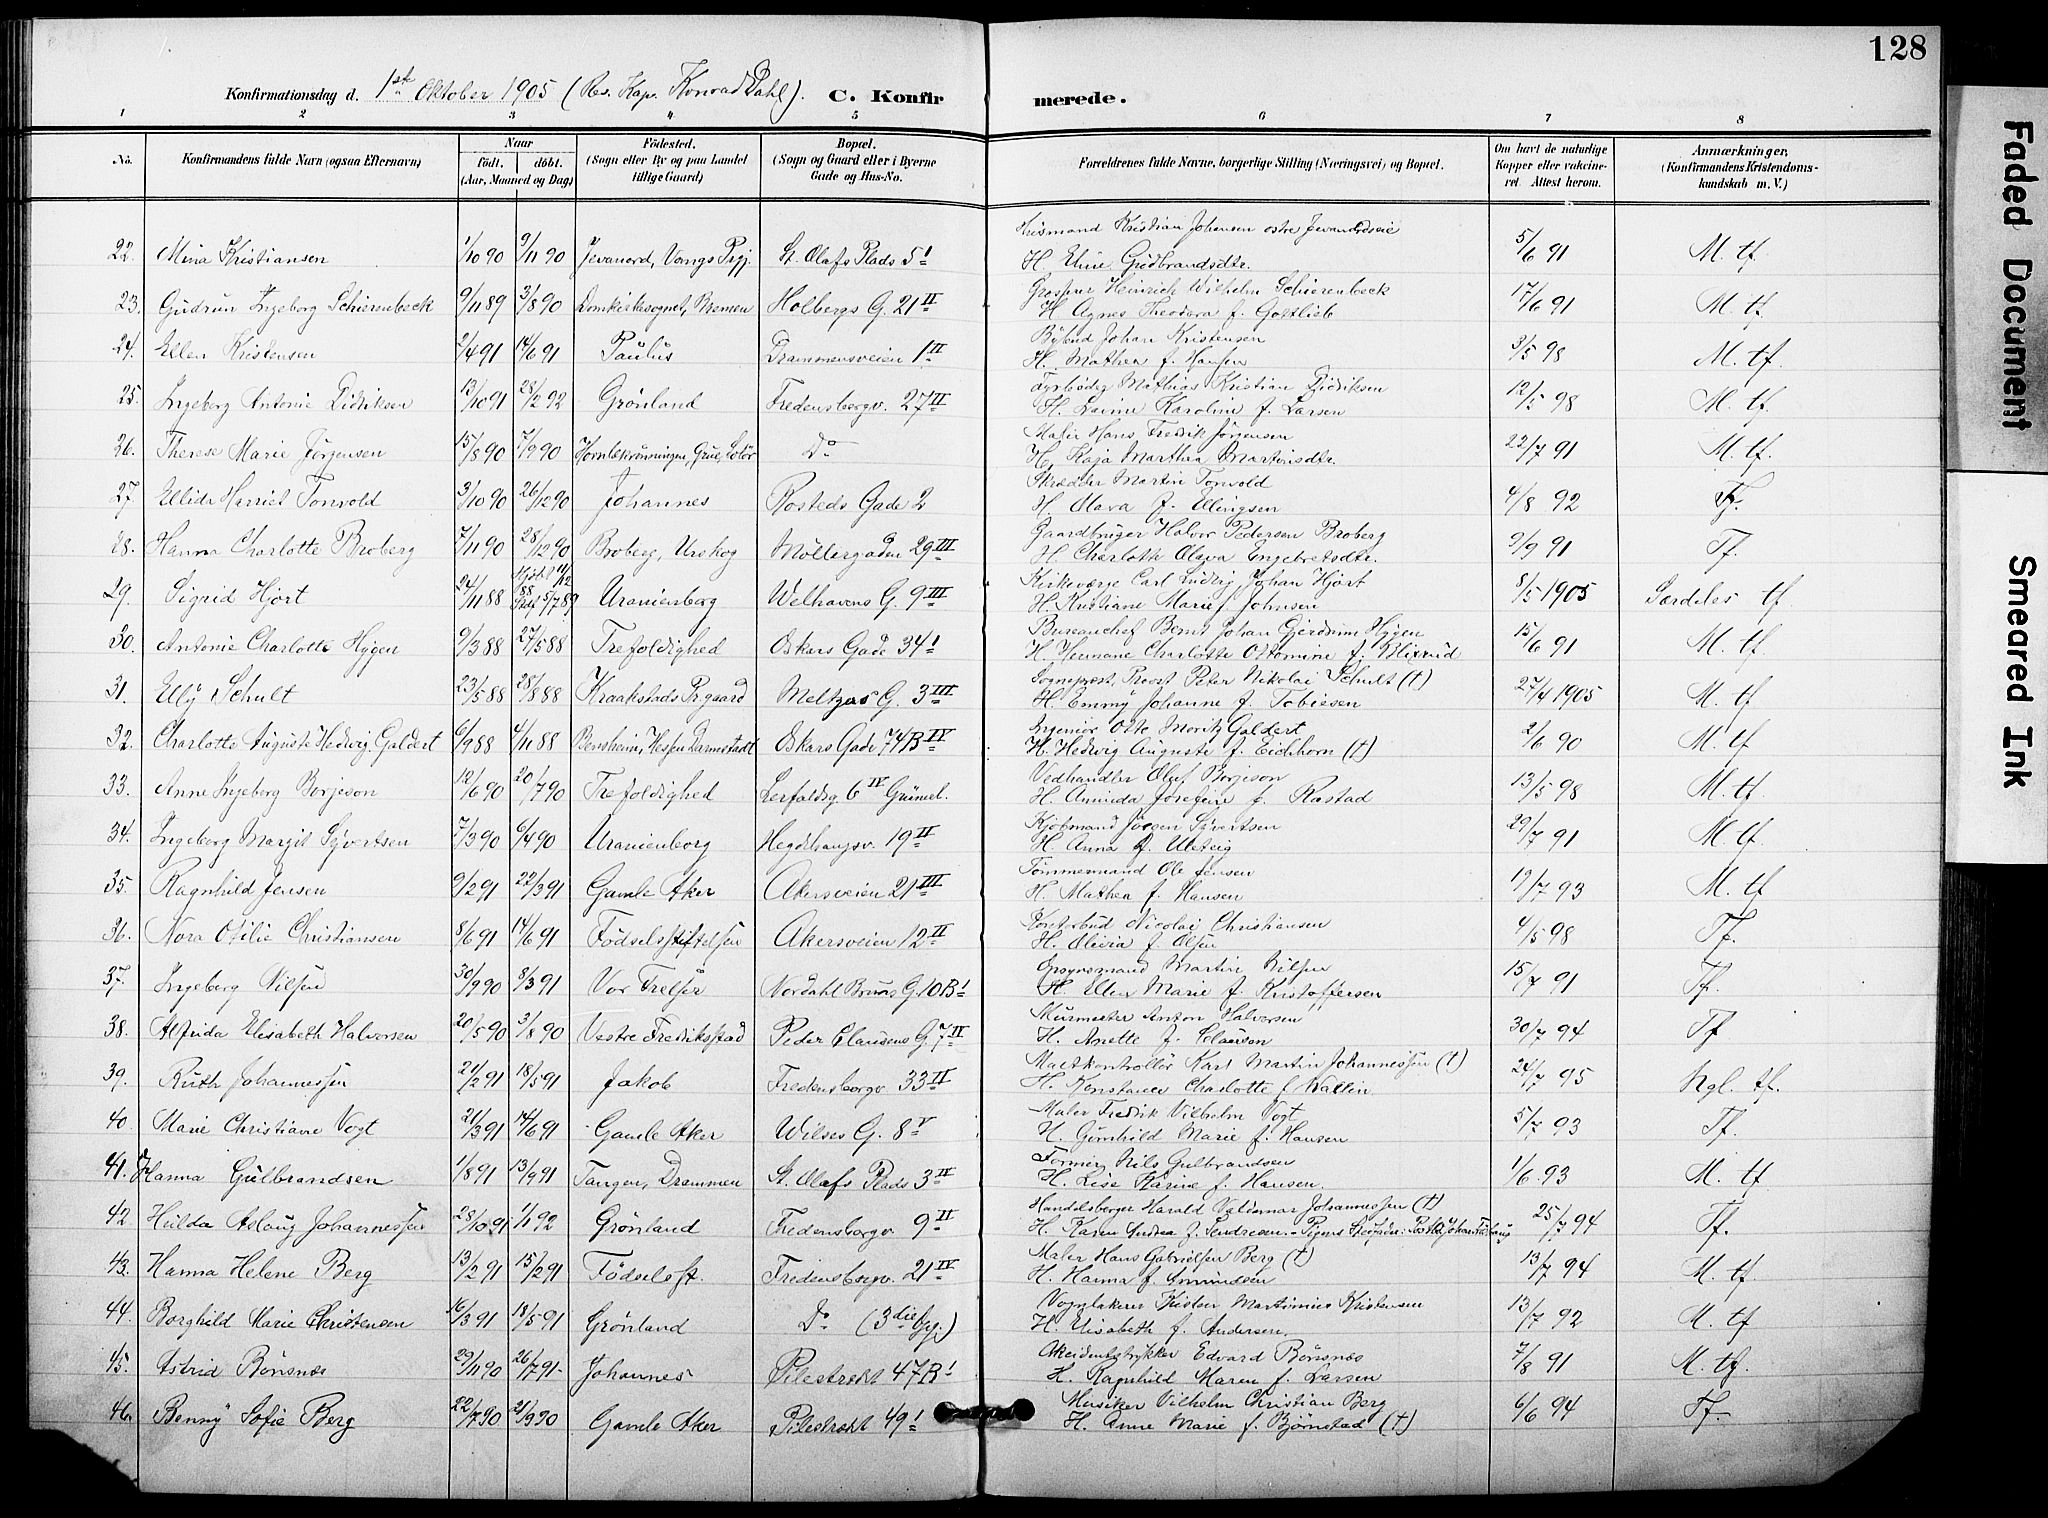 128
Konfirmationsdag d. 1ste Oktober 1905 (Res. Kap. Konrad Dahl). C. Konfirmerede.
1 2 3 4 5 6 7 8
No. | Konfirmandens fulde Navn (ogsaa Efternavn) | Naar født. døbt. (Aar, Maaned og Dag) | Fødested. (Sogn eller By og paa Landet tillige Gaard) | Bopæl. (Sogn og Gaard eller i Byerne Gade og Hus-No. | Forældrenes fulde Navne, borgerlige Stilling (Næringsvei) og Bopæl. | Om havt de naturlige Kopper eller vakcineret. Attest herom. | Anmærkninger, (Konfirmandens Kristendomskundskab m. V.)
22. Mina Kristiansen 1/10 90 9/11 90 Jevanord, Vangs Prgj. St. Olafs Plads 5 I Husmand Kristian Johansen østre Jevanordseie H. Eline Gudbrandsdtr. 5/6 91 M. tf.
23. Gudrun Ingeborg Schierenbeck 9/11 89 3/8 90 Domkirkesognet, Bremen Holbergs G. 21 II Heinrich Wilhelm Schierenbeck H. Agnes Theodora f. Gottlieb 17/6 91 M. tf.
24. Ellen Kristensen 2/4 91 14/6 91 Paulus Drammensveien 1 II Bybud Johan Kristensen H. Mathea f. Hansen 3/5 98 M. tf.
25. Ingeborg Antonie Didriksen 13/10 91 28/2 92 Grønland Fredensborgv. 27 II Fyrbøder Mathias Kristian Didriksen H. Karoline f. Larsen 12/5 98 M. tf.
26. Therese Marie Jørgensen 15/8 90 7/9 90 Grue, Solør Do Maler Hans Fredrik Jørgensen H. Kaja Marthea Martinsdtr. 22/7 91 M. tf.
27. Ellida Harriet Tonvold 3/10 90 26/12 90 Johannes Rosteds Gade 2 Skrædder Martin Tonvold H. Olava f. Ellingsen 4/8 92 Tf.
28. Hanna Charlotte Broberg 7/11 90 28/12 90 Broberg, Urskog Møllergaden 29 III Gaardbruger Halvor Pedersen Broberg H. Charlotte Olava Engebretsdtr. 9/9 91 Tf.
29. Sigrid Hjort 24/11 88 Hjdbt 11/12 88 Uranienborg Welhavens G. 9 III Kirkeværge Carl Ludvig Johan Hjort H. Kristiane Marie f. Johnsen 8/5 1905 Særdeles tf.
30. Antonie Charlotte Hygen 9/3 88 27/5 88 Trefoldighed Oskars Gade 34 I Bureauchef Bernt Johan Gjerdrum Hygen H. Hermane Charlotte Ottomine f. Blixrud 15/6 91 M. tf
31. Elly Schult 23/5 88 28/8 88 Kraakstads Prgaard Meltzers G. 3 III Sogneprest, Provst Peter Nikolai Schult (†) H. Emmy Johanne f. Tobiesen 27/4 1905 M. tf
32. Charlotte Auguste Hedwig Galdert 6/9 88 4/11 88 Bensheim, Hessen Darmstadt Oskars Gade 74 B IV Ingeniør Otto Moritz Galdert H. Hedwig Auguste f. Eichhorn (†) 2/6 90 M. tf
33. Anne Ingeborg Borjeson 12/6 90 20/7 90 Trefoldighed Lerfaldsg. 6 IV Olaf Borjeson H. Amanda Josefine f. Rostad 13/5 98 M. tf
34. Ingeborg Margit Syvertsen 7/3 90 6/4 90 Uranienborg Hegdehaugsv. 19 II Kjøbmand Jørgen Syvertsen H. Anna f. Ulstvig 29/7 91 M. tf.
35. Ragnhild Jensen 9/2 91 22/3 91 Gamle Aker Akersveien 21 III Tømmermand Ole Jensen H. Mathea f. Hansen 19/7 93 M. tf
36. Nora Otilie Christiansen 8/6 91 14/6 91 Fødselsstiftelsen Akersveien 12 II Kontorbud Nicolai Christiansen H. Olivia f. Olsen 4/5 98 Tf.
37. Ingeborg Nilsen 30/9 90 8/3 91 Vor Frelser Nordahl Bruns G. 10 B I Opsynsmand Martin Nilsen H. Ellen Marie f. Kristoffersen 15/7 91 Tf.
38. Alfrida Elisabeth Halvorsen 20/5 90 3/8 90 Vestre Fredrikstad Peder Claudens G. 7 II Murmester Anton Halvorsen H. Anette f. Clausen 30/7 94 Tf
39. Ruth Johannessen 21/2 91 18/5 91 Jakob Fredensborgv. 33 II Maltkontrollør Karl Martin Johannessen (†) H. Konstance Charlotte f. Wallin 24/7 95 Ngl. tf.
40. Marie Christiane Vogt 21/3 91 14/6 91 Gamle Aker Wilses G. 8 V Maler Fredrik Vilhelm Vogt H. Gunhild Marie f. Hansen 5/7 93 Tf.
41. Hanna Gulbrandsen 1/8 91 13/9 91 Tangen, Drammen St. Olafs Plads 3 IV Former Nils Gulbrandsen H. Lise Karine f. Hansen. 1/6 93 M. tf
42. Hulda Aslaug Johannessen 28/10 91 1/1 92 Grønland Fredensborgv. 9 II Handelsborger Harald Valdemar Johannessen (†) H. Karen Andrea f. Pigens Stedfader: 25/7 94 Tf.
43. Hanna Helene Berg 13/2 91 15/2 91 Fødselsst. Fredensborgv. 21 IV Maler Hans Gabrielsen Berg (†) H. Hanna f. Amundsen 13/7 94 M. tf.
44. Borghild Marie Christensen 16/3 91 18/5 91 Grønland Do (3die Bg.) Vognlakerer Martinius Kristensen H. Elisabeth f. Andersen. 13/7 92 M. tf
45. Astrid Bønsnæs 29/11 90 26/7 91 Johannes Pilestrædet 47 B I Akcidentstrykker Edvard Bønsnæs H. Ragnhild Maren f. Larsen 7/8 91 M. tf.
46. Benny Sofie Berg 22/7 90 21/9 90 Gamle Aker Pilestrædet 49 I Musiker Vilhelm Christian Berg H. Anne Marie f. Bjørnstad (†) 6/6 94 Tf.
Faded Document
Smeared Ink